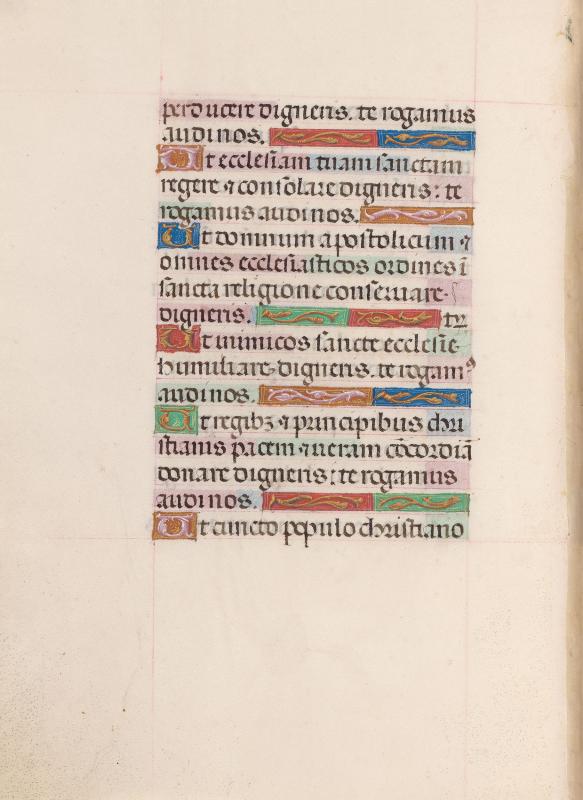 perducere digneris. te rogamus
audi nos.
Ut ecclesiam tuam sanctam
regere ⁊ consolare digneris: te
rogamus audi nos.
Ut domnum apostolicum ⁊
omnes ecclesiasticos ordines ī
sancta religione conseruare
digneris. tr̄
Ut inimicos sancte ecclesie
humiliare digneris. te rogamꝰ
audi nos.
Ut regibꝫ ⁊ principibus chri
stianis pacem ⁊ ueram cōcordiā
donare digneris: te rogamus
audi nos.
Ut cuncto populo christiano